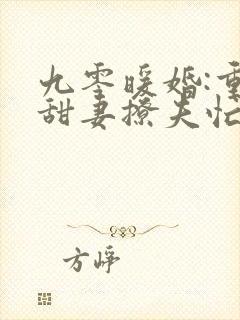 九零暖婚:重
甜妻撩夫忙
方峥